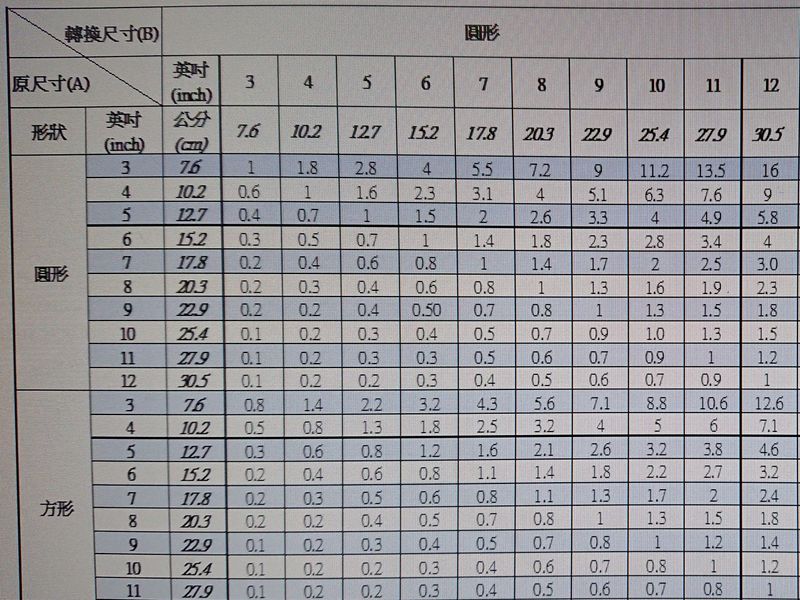 轉換尺寸(B) 圓形
原尺寸(A) 英吋 (inch) 3 4 5 6 7 8 9 10 11 12
形狀 英吋 (inch) 公分 (cm) 7.6 10.2 12.7 15.2 17.8 20.3 22.9 25.4 27.9 30.5
圓形
3 7.6 1 1.8 2.8 4 5.5 7.2 9 11.2 13.5 16
4 10.2 0.6 1 1.6 2.3 3.1 4 5.1 6.3 7.6 9
5 12.7 0.4 0.7 1 1.5 2 2.6 3.3 4 4.9 5.8
6 15.2 0.3 0.5 0.7 1 1.4 1.8 2.3 2.8 3.4 4
7 17.8 0.2 0.4 0.6 0.8 1 1.4 1.7 2 2.5 3.0
8 20.3 0.2 0.3 0.4 0.6 0.8 1 1.3 1.6 1.9 2.3
9 22.9 0.2 0.2 0.4 0.50 0.7 0.8 1 1.3 1.5 1.8
10 25.4 0.1 0.2 0.3 0.4 0.5 0.7 0.9 1.0 1.3 1.5
11 27.9 0.1 0.2 0.3 0.3 0.5 0.6 0.7 0.9 1 1.2
12 30.5 0.1 0.2 0.2 0.3 0.4 0.5 0.6 0.7 0.9 1
方形
3 7.6 0.8 1.4 2.2 3.2 4.3 5.6 7.1 8.8 10.6 12.6
4 10.2 0.5 0.8 1.3 1.8 2.5 3.2 4 5 6 7.1
5 12.7 0.3 0.6 0.8 1.2 1.6 2.1 2.6 3.2 3.8 4.6
6 15.2 0.2 0.4 0.6 0.8 1.1 1.4 1.8 2.2 2.7 3.2
7 17.8 0.2 0.3 0.5 0.6 0.8 1.1 1.3 1.7 2 2.4
8 20.3 0.2 0.2 0.4 0.5 0.7 0.8 1 1.3 1.5 1.8
9 22.9 0.1 0.2 0.3 0.4 0.5 0.7 0.8 1 1.2 1.4
10 25.4 0.1 0.2 0.2 0.3 0.4 0.6 0.7 0.8 1 1.2
11 27.9 0.1 0.2 0.2 0.3 0.4 0.5 0.6 0.7 0.8 1